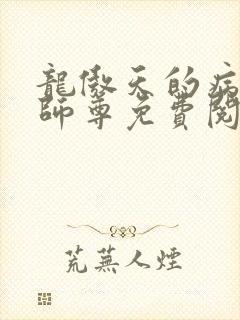 龍傲天的病
師尊免費閱
荒蕪人煙